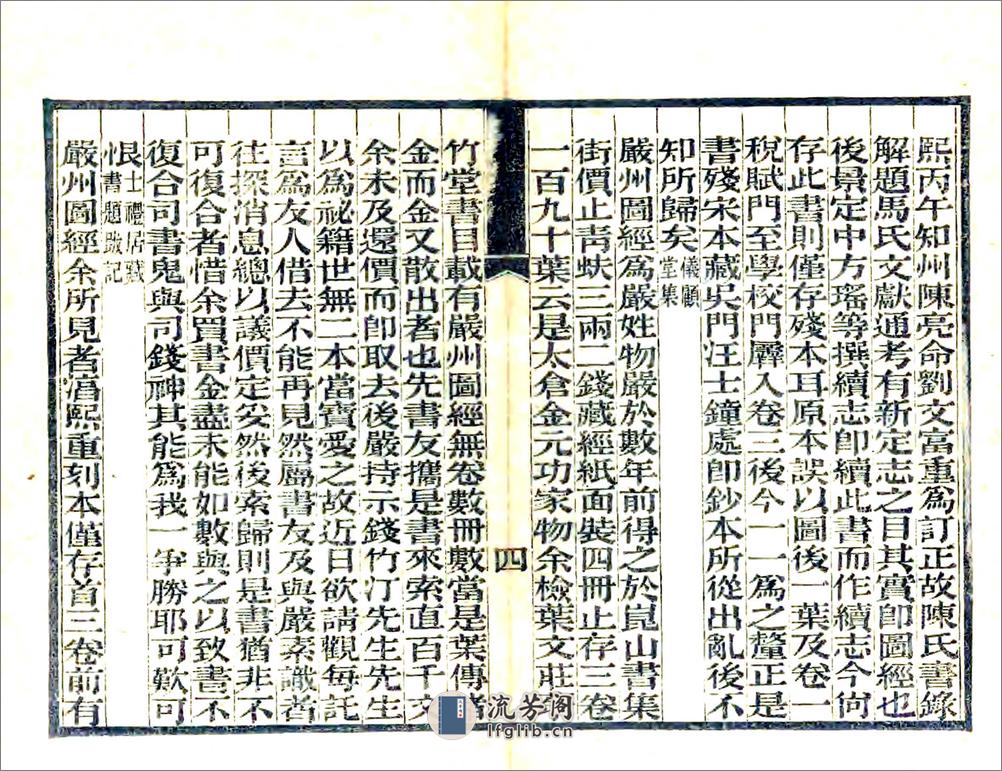 熙丙午知州陳亮命劉文富重爲訂正故陳氏書錄
解題馬氏文獻通考有新定志之目其實卽圖經也
後景定中方瑤等撰續志卽續此書而作續志今尙
存此書則僅存殘本耳原本誤以圖後一葉及卷一
稅賦門至學校門羼入卷三後今一一爲之釐正是
書殘宋本藏吳門汪士鐘處卽鈔本所從出亂後不
知所歸矣儀顧堂集
嚴州圖經爲嚴姓物嚴於數年前得之於崑山書集
街價止靑蚨三兩二錢藏經紙面裝四冊止存三卷
一百九十葉云是太倉金元功家物余檢葉文莊菉
四
竹堂書目載有嚴州圖經無卷數冊數當是葉傳諸
金而金又散出者也先書友攜是書來索直百千文
余未及還價而卽取去後嚴持示錢竹汀先生先生
以爲祕籍世無二本當寶愛之故近日欲請觀每託
言爲友人借去不能再見然屬書友及與嚴素識者
往探消息總以議價定妥然後索歸則是書猶非不
可復合者惜余買書金盡未能如數與之以致書不
復合司書鬼與司錢神其能爲我一爭勝耶可歎可
恨士禮居藏書題跋記
嚴州圖經余所見者淳熙重刻本僅存首三卷前有
流芳閣
lfglib.cn